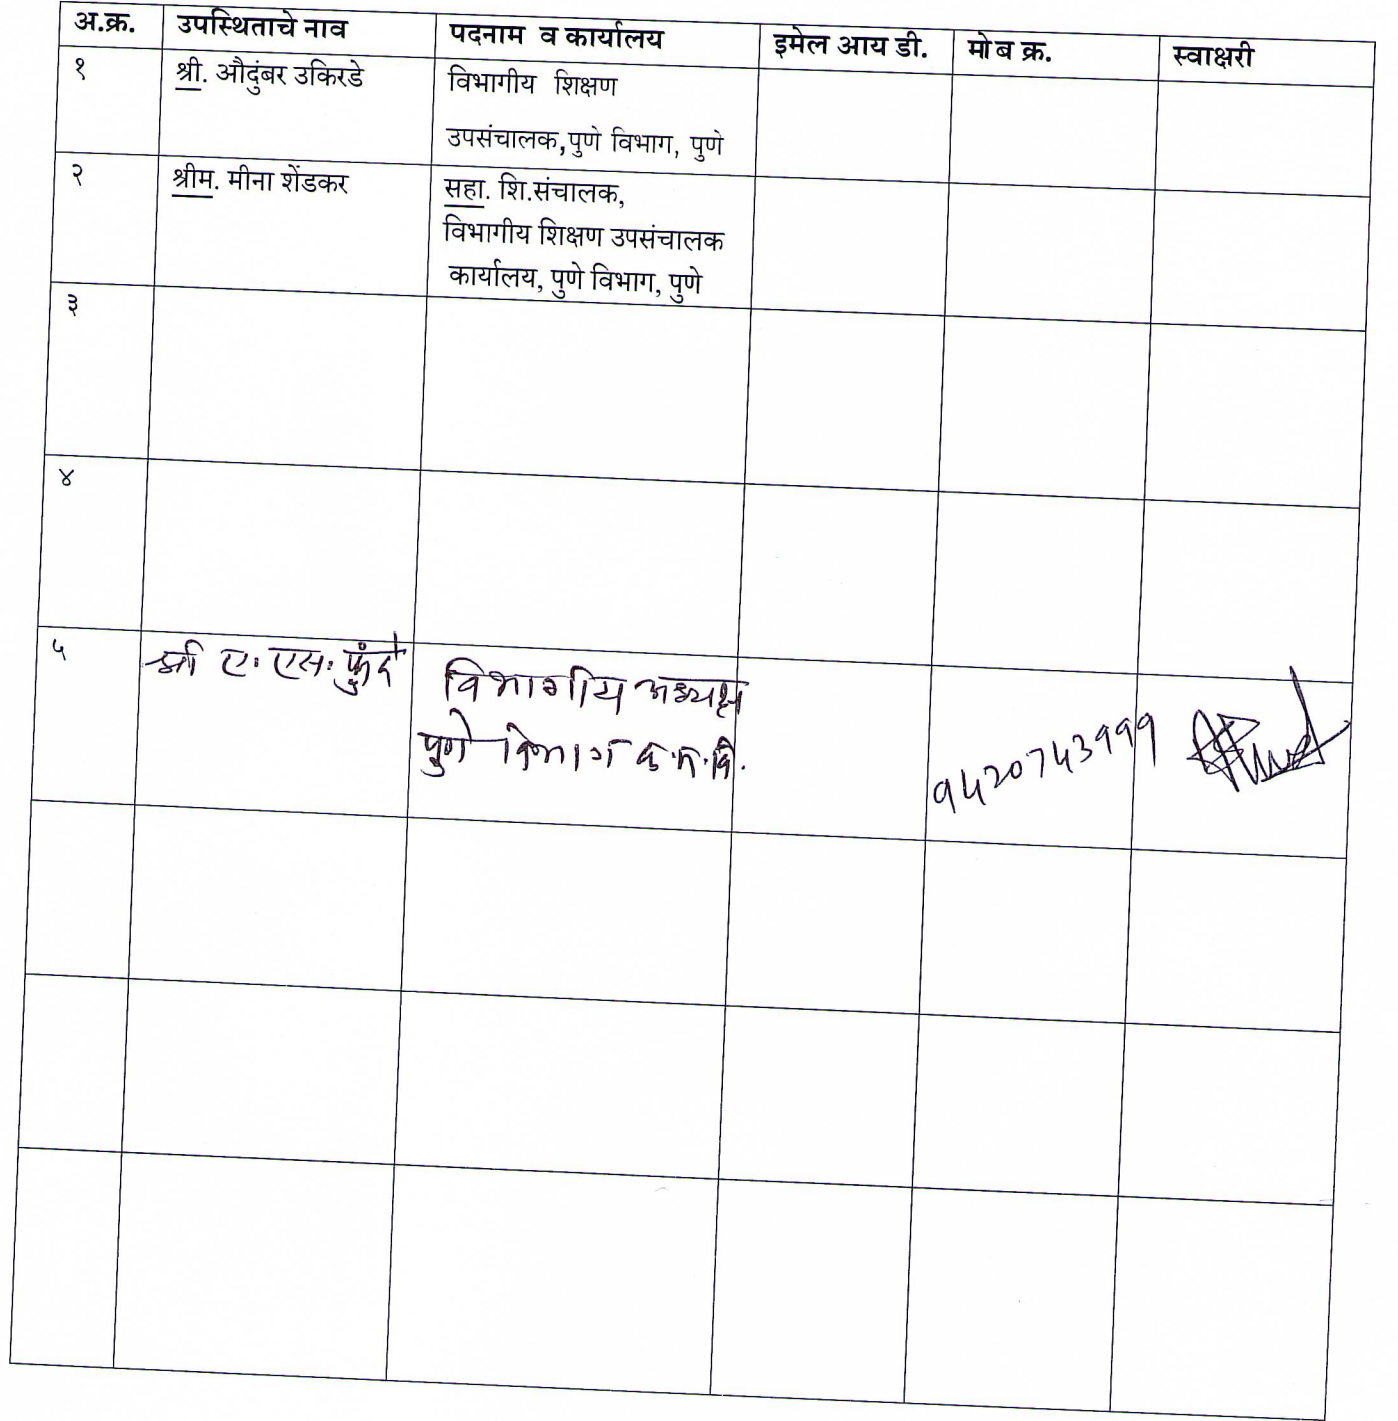 अ.क्र. उपस्थिताचे नाव पदनाम व कार्यालय इमेल आय डी. मोब क्र. स्वाक्षरी
१ श्री. औदुंबर उकिरडे विभागीय शिक्षण
उपसंचालक,पुणे विभाग, पुणे
२ श्रीम. मीना शेंडकर सहा. शि.संचालक,
विभागीय शिक्षण उपसंचालक
कार्यालय, पुणे विभाग, पुणे
३
४
५ श्री ए. एस. फुंदे विभागीय अध्यक्ष
पुणे विभाग क.म.वि. 9420743999